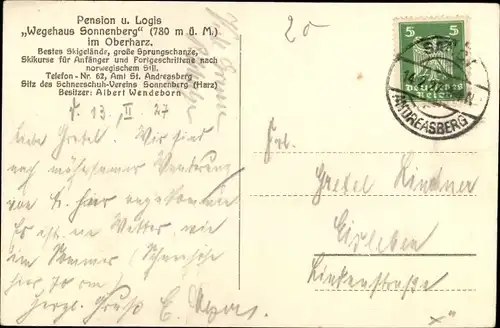 Pension u. Logis
„Wegehaus Sonnenberg“ (780 m ü. M.)
im Oberharz.
Bestes Skigelände, große Sprungschanze,
Skikurse für Anfänger und Fortgeschrittene nach
norwegischem Stil.
Telefon-Nr. 62, Amt St. Andreasberg
Sitz des Schneeschuh-Vereins Sonnenberg (Harz)
Besitzer: Albert Wendeborn
13. II. 27
Liebe Gretel. Wir sind
nach mühsamer Wanderung
von hier angekommen
Es ist ne Wetter, wie
im Sommer (Schneehöhe
hier 70 cm)
Herzl. Gruß E.
20
5 5
Deutsches
Reich
ANDREASBERG
Frl.
Gretel Lindner
Eisleben
Lindenstraße